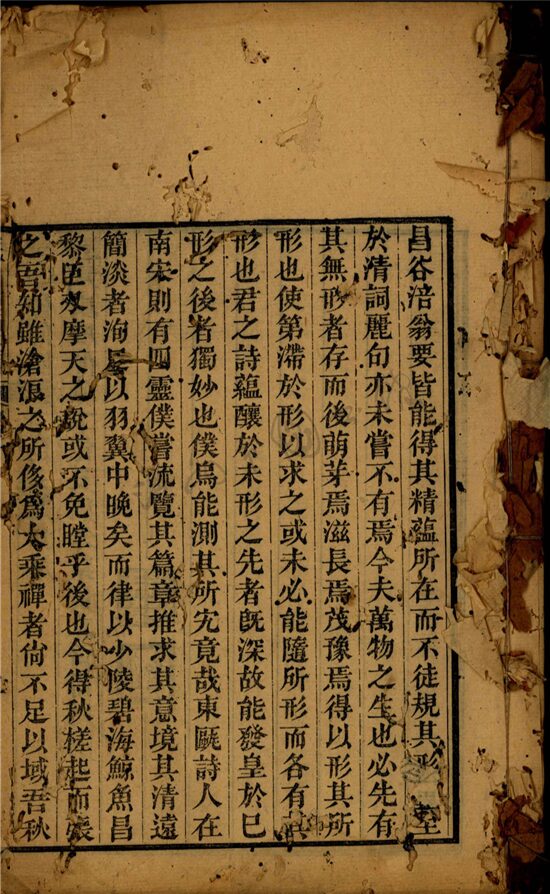 昌谷涪翁要皆能得其精蘊所在而不徒規其形至
於清詞麗句亦未嘗不有焉今夫萬物之生也必先有
其無形者存而後萌芽焉滋長焉茂豫焉得以形其所
形也使第滯於形以求之或未必能隨所形而各有其
形也君之詩蘊釀於未形之先者旣深故能發皇於已
形之後者獨妙也僕烏能測其所究竟哉東甌詩人在
南宋則有四靈僕嘗流覽其篇章推求其意境其清遠
簡淡者洵足以羽翼中晚矣而律以少陵碧海鯨魚昌
黎巨刃摩天之說或不免瞠乎後也今得秋槎起而張
之吾知雖滄浪之所侈爲大乘禪者尙不足以域吾秋